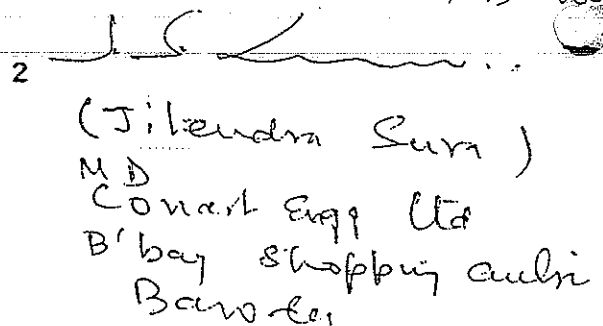 2
(Jitendra Sura)
MD
Conart Engg Ltd
B'bay Shopping
Baroda